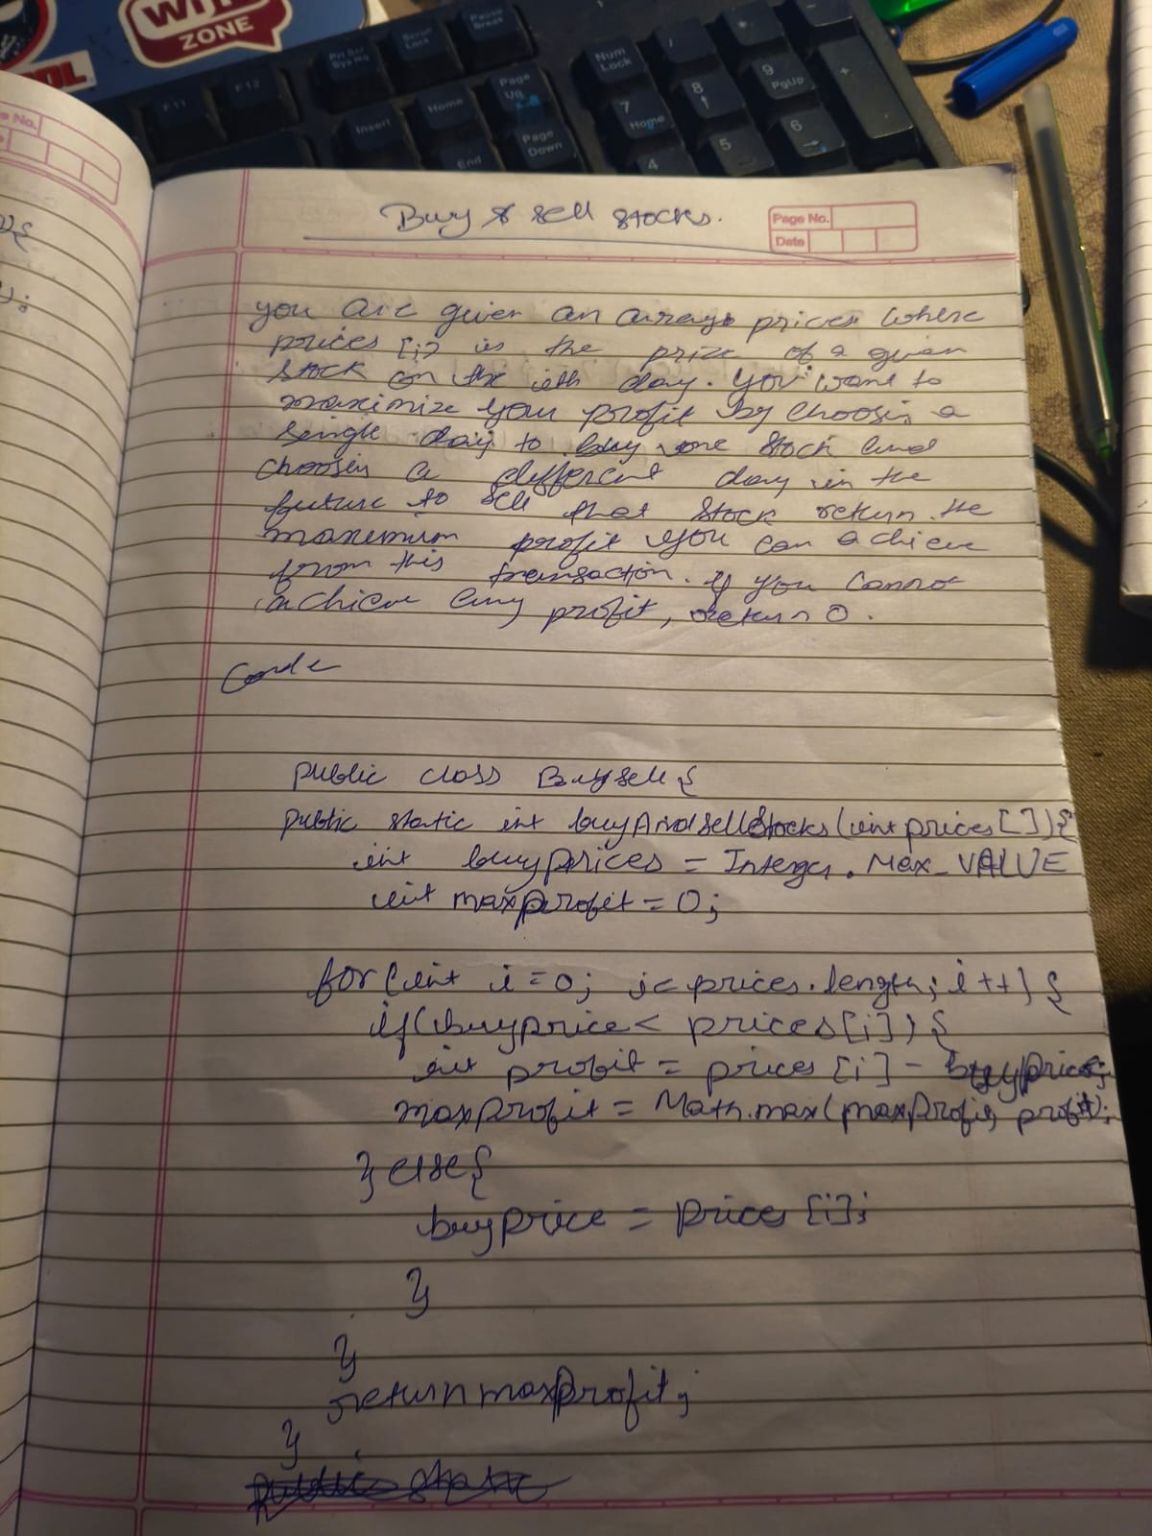 WIT
ZONE
OL
F11
F12
Prt Scr
SysRq
Scroll
Lock
Pause
Break
Insert
Home
Page
Up
End
Page
Down
Num
Lock
/
7
Home
8
9
PgUp
+
4
5
6
e No.
Buy & sell stocks.
Page No.
Date
you are given an array prices where
prices [i] is the prize of a given
stock on the ith day. You want to
maximize your profit by choosin a
single day to buy one stock and
choosin a different day in the
future to sell that stock return the
maximum profit you can achieve
from this transaction. if you cannot
achieve any profit, return 0.
Code
public class Buysell {
public static int buyAndsellStocks (int prices []) {
int buyprices = Integer. Max_VALUE
int maxprofit = 0;
for (int i = 0; i < prices.length; i ++) {
if (buyprice < prices [i]) {
int profit = prices [i] - buyprice;
maxprofit = Math.max (maxprofit, profit);
} else {
buyprice = prices [i];
}
}
return maxprofit;
}
public static